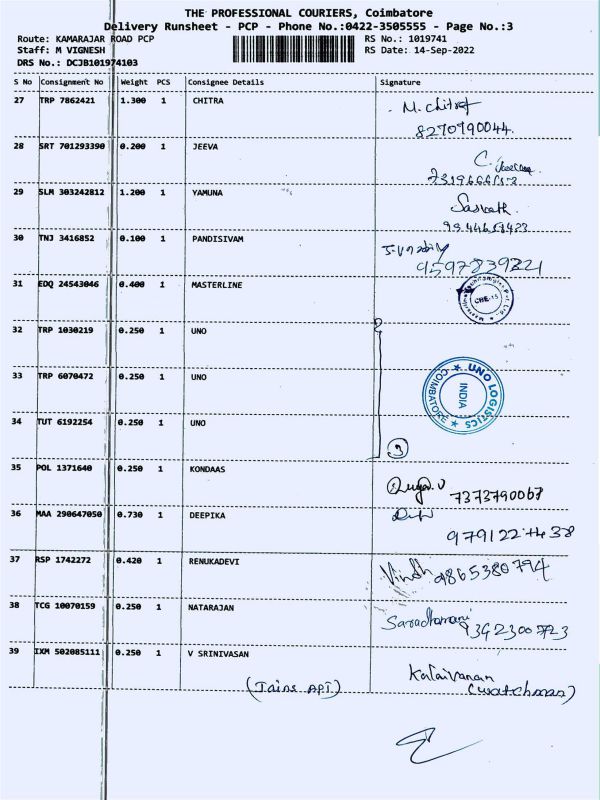 THE PROFESSIONAL COURIERS, Coimbatore
Delivery Runsheet - PCP - Phone No.:0422-3505555 - Page No.:3
Route: KAMARAJAR ROAD PCP
RS No.: 1019741
Staff: M VIGNESH
RS Date: 14-Sep-2022
DRS No.: DCJB101974103
S No Consignment No Weight PCS Consignee Details Signature
27 TRP 7862421 1.300 1 CHITRA
M. Chitra
8270790044.
28 SRT 701293390 0.200 1 JEEVA
29 SLM 303242812 1.200 1 YAMUNA
30 TNJ 3416852 0.100 1 PANDISIVAM
9597839221
31 EDQ 24543046 0.400 1 MASTERLINE
CBE-15
32 TRP 1030219 0.250 1 UNO
33 TRP 6070472 0.250 1 UNO
UNO LOGISTICS
INDIA
COIMBATORE
34 TUT 6192254 0.250 1 UNO
3
35 POL 1371640 0.250 1 KONDAAS
7373790067
36 MAA 290647050 0.730 1 DEEPIKA
37 RSP 1742272 0.420 1 RENUKADEVI
Vindh 9865380794
38 TCG 10070159 0.250 1 NATARAJAN
Saradhamani
39 IXM 502085111 0.250 1 V SRINIVASAN
(Jains APT)
Kalaivanan
(watchman)